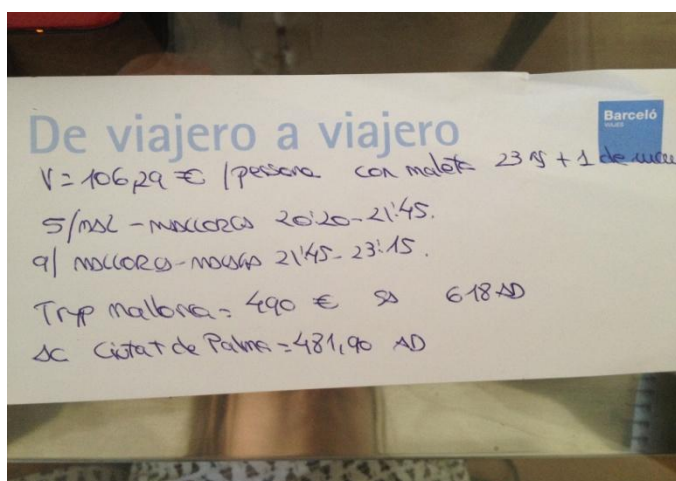 De viajero a viajero
Barceló
VIAJES
V = 106,29 € / persona con maleta 23 + 1 de
5/ - MALLORCA 20:20 - 21:45.
9/ MALLORCA - 21:45 - 23:15.
Tryp Mallorca = 490 € SA 618 AD
AC Ciutat de Palma = 481,90 AD